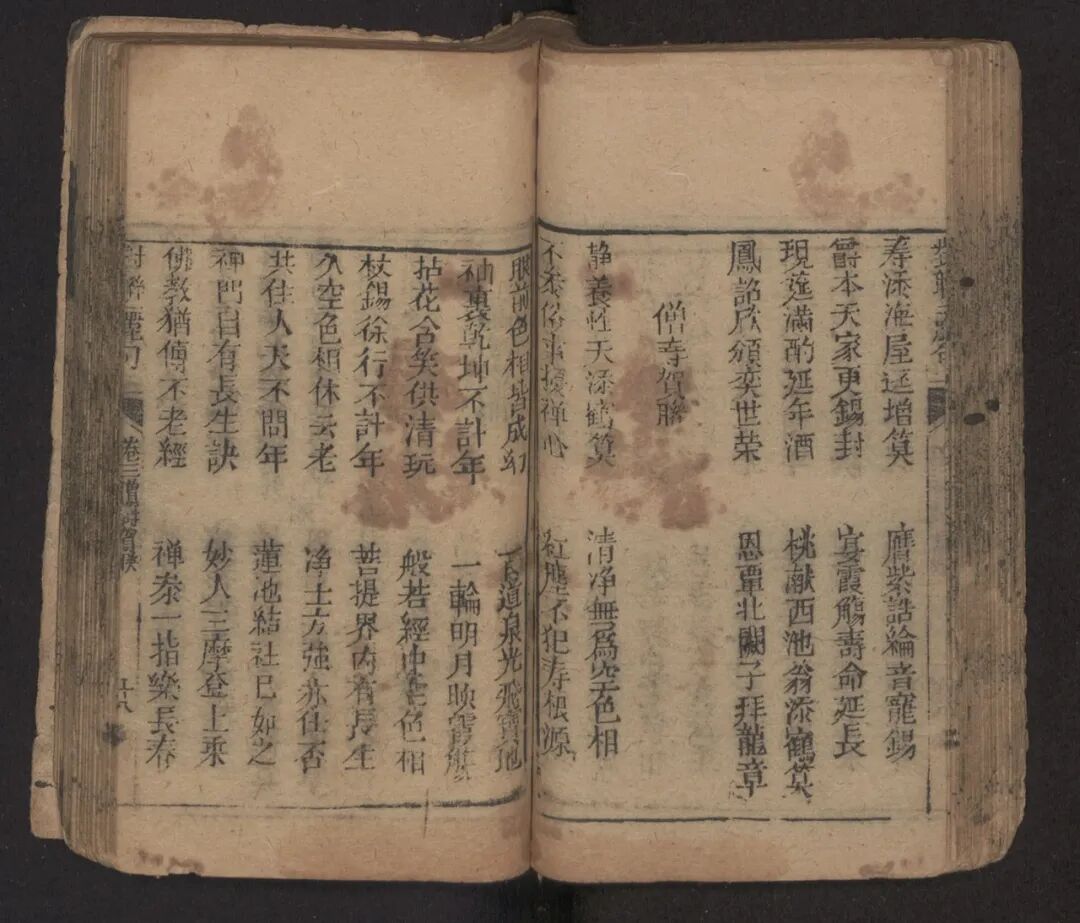 寿添海屋遥增筭
膺紫誥綸音寵錫
爵本天家更錫封
宴霞觴壽命延長
現筵滿酌延年酒
桃献西池翁添鶴筭
鳳詔欣頒奕世荣
恩覃北闕子拜龍章
僧寺賀聮
静養性天添鶴筭
清净無爲空色相
不参俗事擾禅心
紅塵不犯寿根源
眼前色相皆成幻
道泉光飛寳地
袖裏乾坤不計年
一輪明月映霞觴
拈花含笑供清玩
般若經中空色相
杖錫徐行不計年
菩提界内有長生
久空色相休云老
净土方強亦仕否
共住人天不問年
蓮池結社已如之
禅門自有長生訣
妙人三摩登上乘
佛教猶傳不老經
禅参一指樂長春
對聮麗句
卷三僧寺賀聮
十八